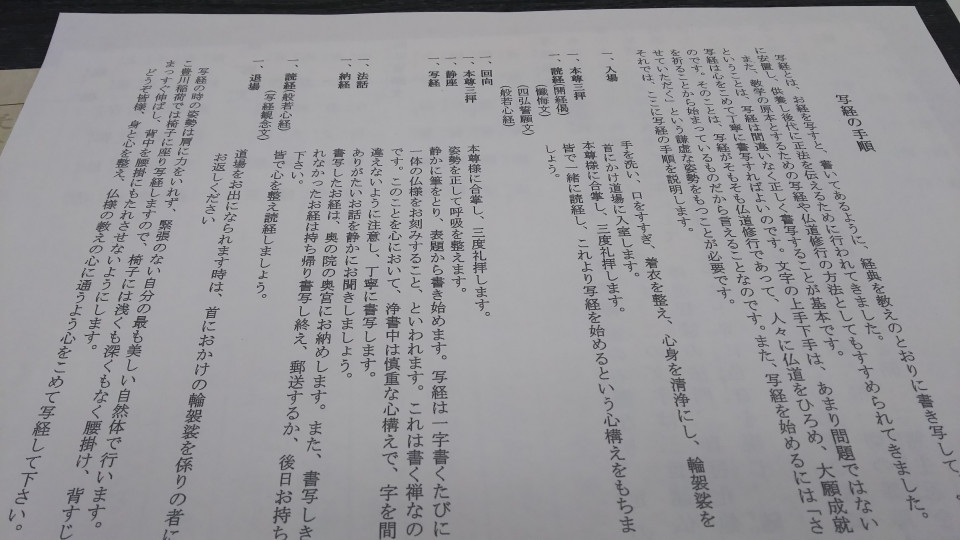 写経の手順
写経とは、お経を写すと、書いてあるように、経典を教えのとおりに書き写して、
に安置し、供養し後代に正法を伝えるために行われてきました。
また、教学の原本とするための写経や仏道修行の方法としてもすすめられてきました。
ということは、写経は間違いなく正しく書写することが基本です。
写経は心をこめて丁寧に書写すればよいのです。文字の上手下手は、あまり問題ではない
のです。そのことは、写経がそもそも仏道修行であって、人々に仏道をひろめ、大願成就
を祈ることから始まっているものだから言えることなのです。また、写経を始めるには「さ
せていただく」という謙虚な姿勢をもつことが必要です。
それでは、ここに写経の手順を説明します。
一、入場
手を洗い、口をすすぎ、着衣を整え、心身を清浄にし、輪袈裟を
首にかけ道場に入室します。
一、本尊三拝
本尊様に合掌し、三度礼拝します。
一、読経(開経偈)
皆で一緒に読経し、これより写経を始めるという心構えをもちま
しょう。
(懺悔文)
(四弘誓願文)
(般若心経)
一、回向
一、本尊三拝
本尊様に合掌し、三度礼拝します。
一、静座
姿勢を正して呼吸を整えます。
一、写経
静かに筆をとり、表題から書き始めます。写経は一字書くたびに
一体の仏様をお刻みすること、といわれます。これは書く禅なの
です。このことを心において、浄書中は慎重な心構えで、字を間
違えないように注意し、丁寧に書写します。
一、法話
ありがたいお話を静かにお聞きしましょう。
一、納経
書写したお経は、奥の院の奥宮にお納めします。また、書写しき
れなかったお経は持ち帰り書写し終え、郵送するか、後日お持ち
下さい。
一、読経(般若心経)
皆で心を整え読経しましょう。
(写経観念文)
一、退場
道場をお出になられます時は、首におかけの輪袈裟を係りの者に
お返しください
写経の時の姿勢は肩に力をいれず、緊張のない自分の最も美しい自然体で行います。
こ豊川稲荷では椅子に座り写経しますので、椅子には浅くも深くもなく腰掛け、背すじ
まっすぐ伸ばし、背中を腰掛にもたれさせないようにします。
どうぞ皆様、身と心を整え、仏様の教えの心に通うよう心をこめて写経して下さい。